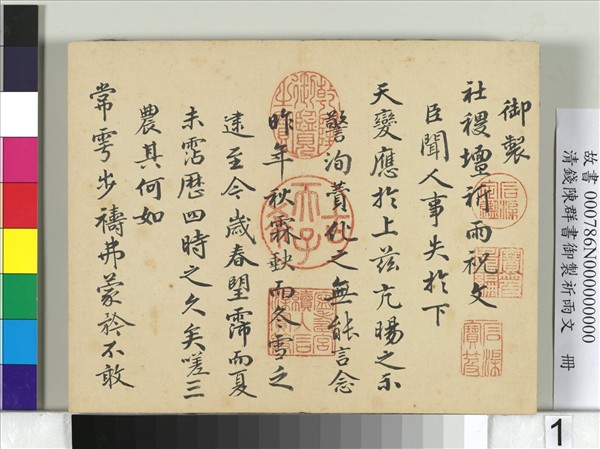 御製
社稷壇祈雨祝文
臣聞人事失於下
天變應於上茲亢暘之示
警洵賛化之無能言念
昨年秋霖缺而冬雪乏
逮至今歲春望霈而夏
未霑歷四時之久矣嗟三
農其何如
常雩步禱弗蒙矜不敢
乾隆御覽之寶
古稀天子
石渠寶笈
故書 000786N000000000
清錢陳群書御製祈雨文 冊
1